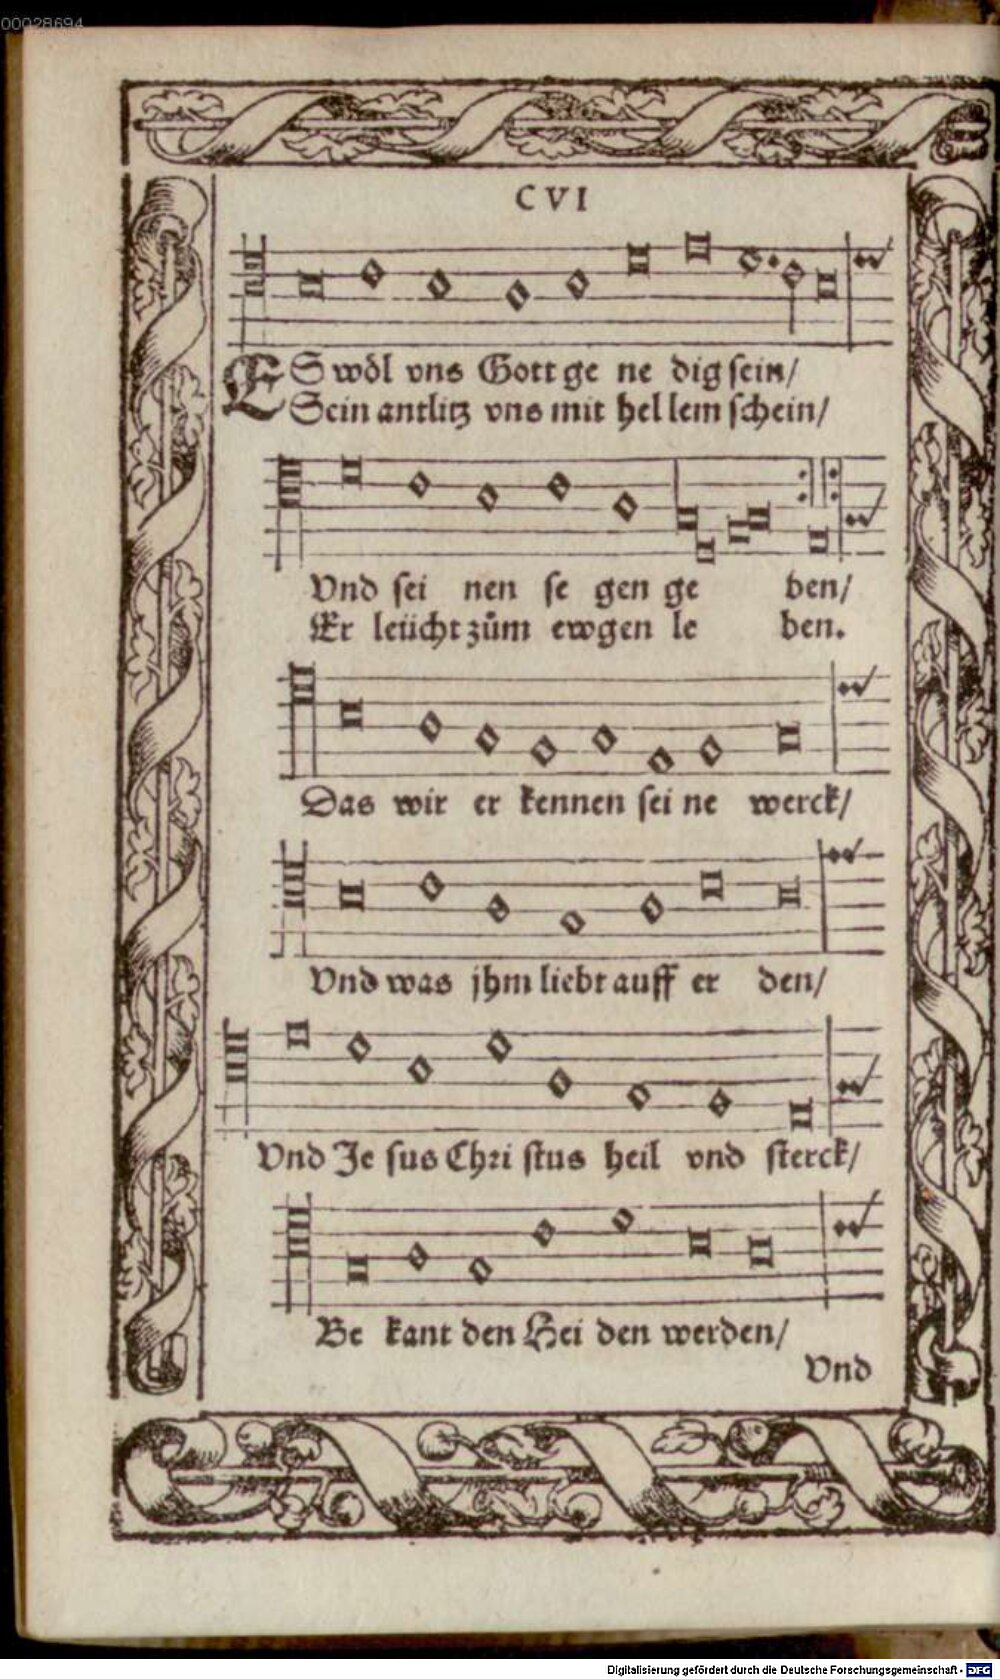 00028694
CVI
ES wöl vns Gott ge ne dig sein/
Sein antlitz vns mit hel lem schein/
Vnd sei nen se gen ge ben/
Er leücht zům ewgen le ben.
Das wir er kennen sei ne werck/
Vnd was jhm liebt auff er den/
Vnd Je sus Chri stus heil vnd sterck/
Be kant den Hei den werden/
Vnd
Digitalisierung gefördert durch die Deutsche Forschungsgemeinschaft - DFG